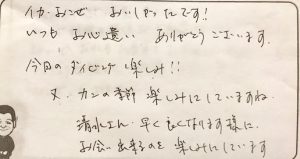 イカ・おこぜ おいしかったです!
いつも お心遣い ありがとうございます.
今月の ダイビング 楽しみ!!
又、カンの季節 楽しみにしていますね
清水さん・早く良くなります様に.
お会い出来るのを 楽しみにしています